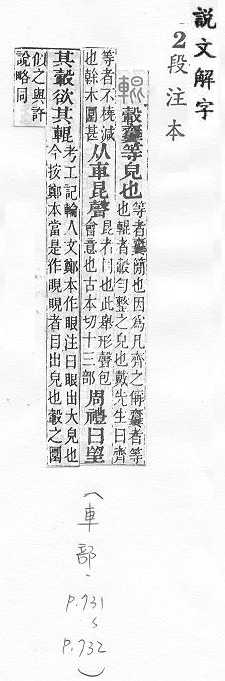 說文解字
2段注本
轂齊等皃也
等者齊簡也因爲凡齊之偁齊者等
也輥者轂勻整之皃也戴先生曰齊
等者不橈減
也榦木圜甚
从車昆聲
昆者同也此舉形聲包
會意也古本切十三部
周禮曰望
其轂欲其輥
考工記輪人文鄭本作眼注曰眼出大皃也
今按鄭本當是作睍睍者目出皃也轂之圜
似之與許
說略同
(車部.
P.731
~
P.732)